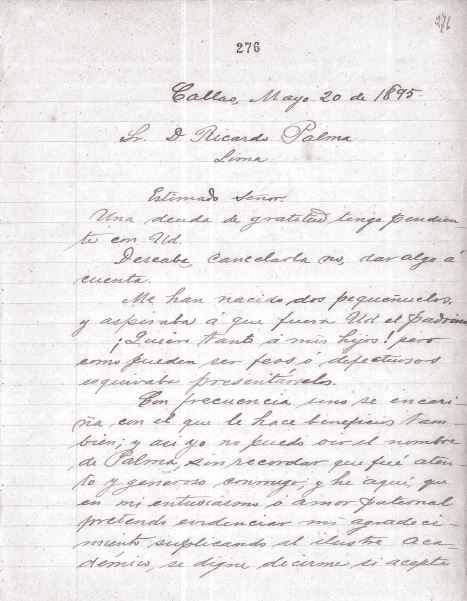 276
276
Callao, Mayo 20 de 1895.
Sr. D Ricardo Palma
Lima
Estimado Señor.
Una deuda de gratitud tengo pendien-
te con Ud.
Deseaba, cancelarla no, dar algo á
cuenta.
Me han nacido dos pequeñuelos,
y aspiraba á que fuera Ud el padrino
¡Quiero tanto á mis hijos! pero
como pueden ser feos ó defectuosos
esquivaba presentárselos.
Con frecuencia uno se encari-
ña, con el que le hace beneficios tam-
bién; y asi yo no puedo oir el nombre
de Palma, sin recordar que fué aten-
to y generoso conmigo; y he aquí, que
en mi entusiasmo ó amor paternal
pretendo evidenciar mi agradeci-
miento suplicando al ilustre aca-
démico, se digne decirme si acepta